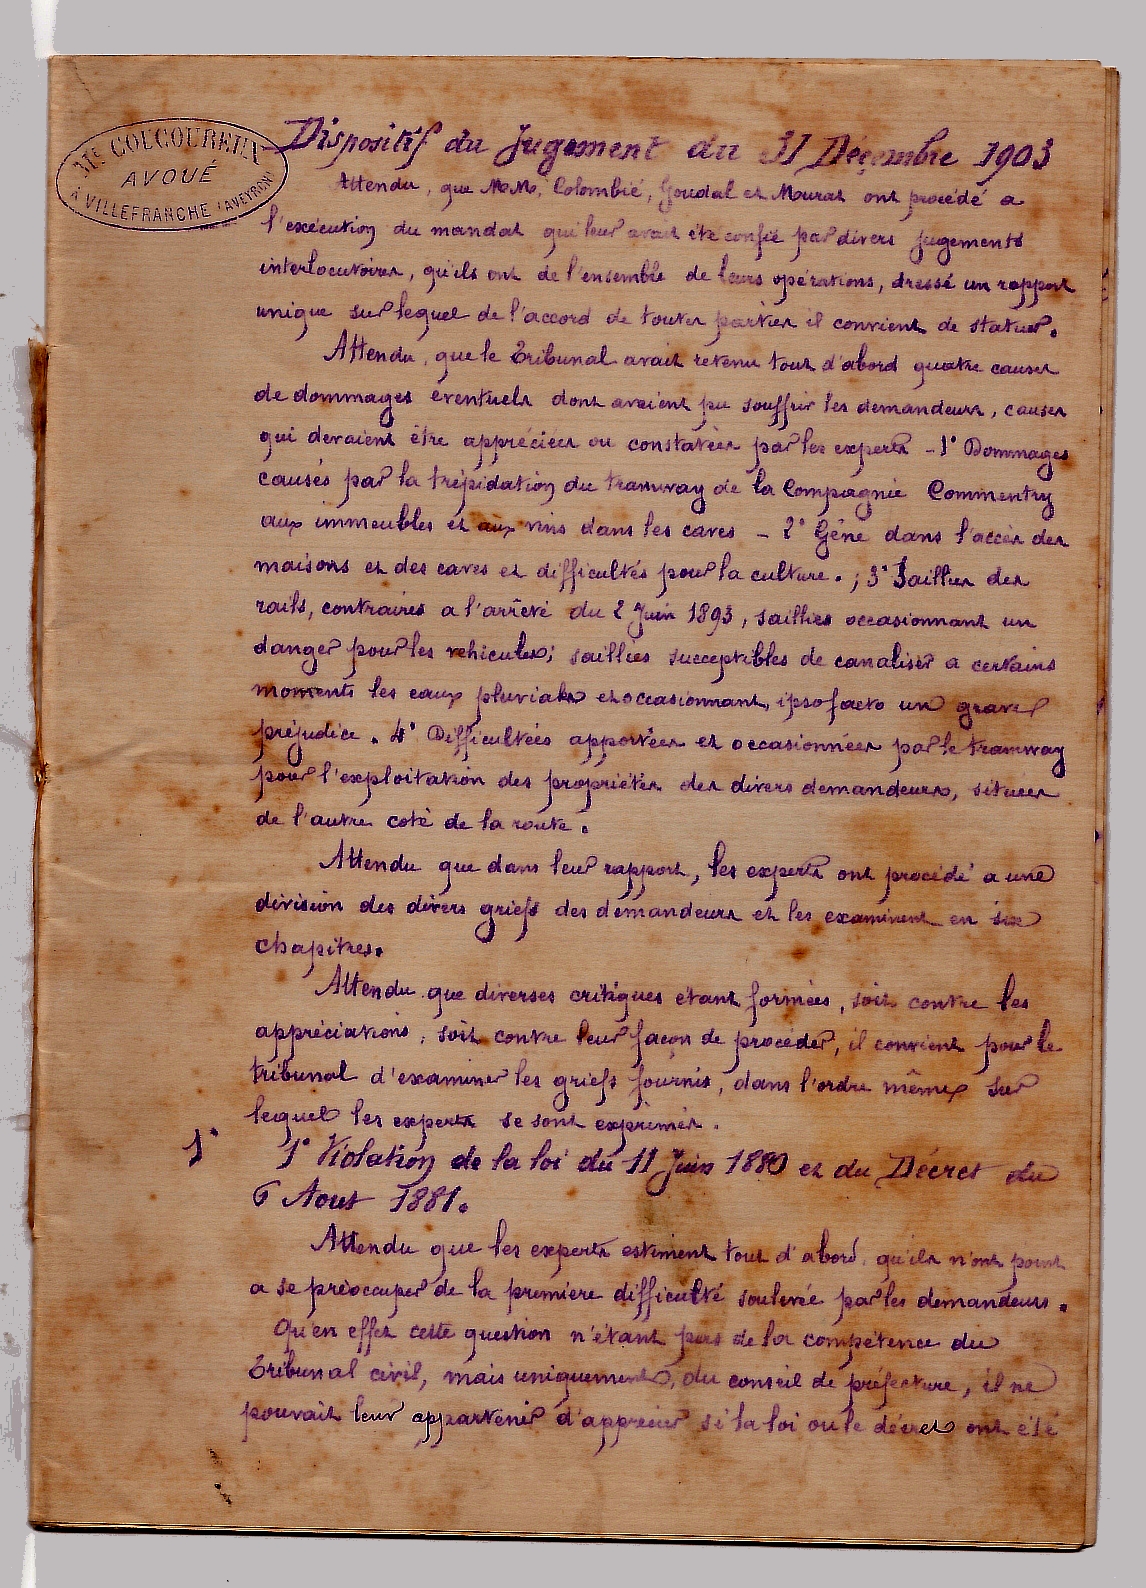 Me COUCOUREUX
AVOUÉ
A VILLEFRANCHE (AVEYRON)
Dispositif du Jugement du 31 Décembre 1903
Attendu, que M.M. Colombié, Goudal et Mourat ont procédé a
l'exécution du mandat qui leur avait été confié par divers jugements
interlocutoires, qu'ils ont de l'ensemble de leurs opérations, dressé un rapport
unique sur lequel de l'accord de toutes parties il convient de statuer.
Attendu, que le Tribunal avait retenu tout d'abord quatre causes
de dommages éventuels dont avaient pu souffrir les demandeurs, causes
qui devaient être appréciées ou constatées par les experts - 1° Dommages
causés par la trépidation du tramway de la Compagnie Commentry
aux immeubles et aux vins dans les caves - 2° Gêne dans l'accès des
maisons et des caves et difficultés pour la culture. ; 3° Saillies des
rails, contraires a l'arrêté du 2 Juin 1893, saillies occasionnant un
danger pour les vehicules; saillies succeptibles de canaliser a certains
moments les eaux pluviales et occasionnant, ipso facto un grave
préjudice. 4° Difficultées apportées et occasionnées par le tramway
pour l'exploitation des propriétés des divers demandeurs, situées
de l'autre coté de la route.
Attendu que dans leur rapport, les experts ont procédé a une
division des divers griefs des demandeurs et les examinent en six
chapitres.
Attendu que diverses critiques étant formées, soit contre les
appréciations, soit contre leur façon de procéder, il convient pour le
tribunal d'examiner les griefs fournis, dans l'ordre même sur
lequel les experts se sont exprimés.
1° 1° Violation de la loi du 11 Juin 1880 et du Décret du
6 Aout 1881.
Attendu que les experts estiment tout d'abord, qu'ils n'ont point
a se préoccuper de la première difficulté soulevée par les demandeurs.
Qu'en effet cette question n'étant pas de la compétence du
Tribunal civil, mais uniquement, du conseil de préfecture, il ne
pouvait leur appartenir d'apprécier si la loi ou le décret ont été